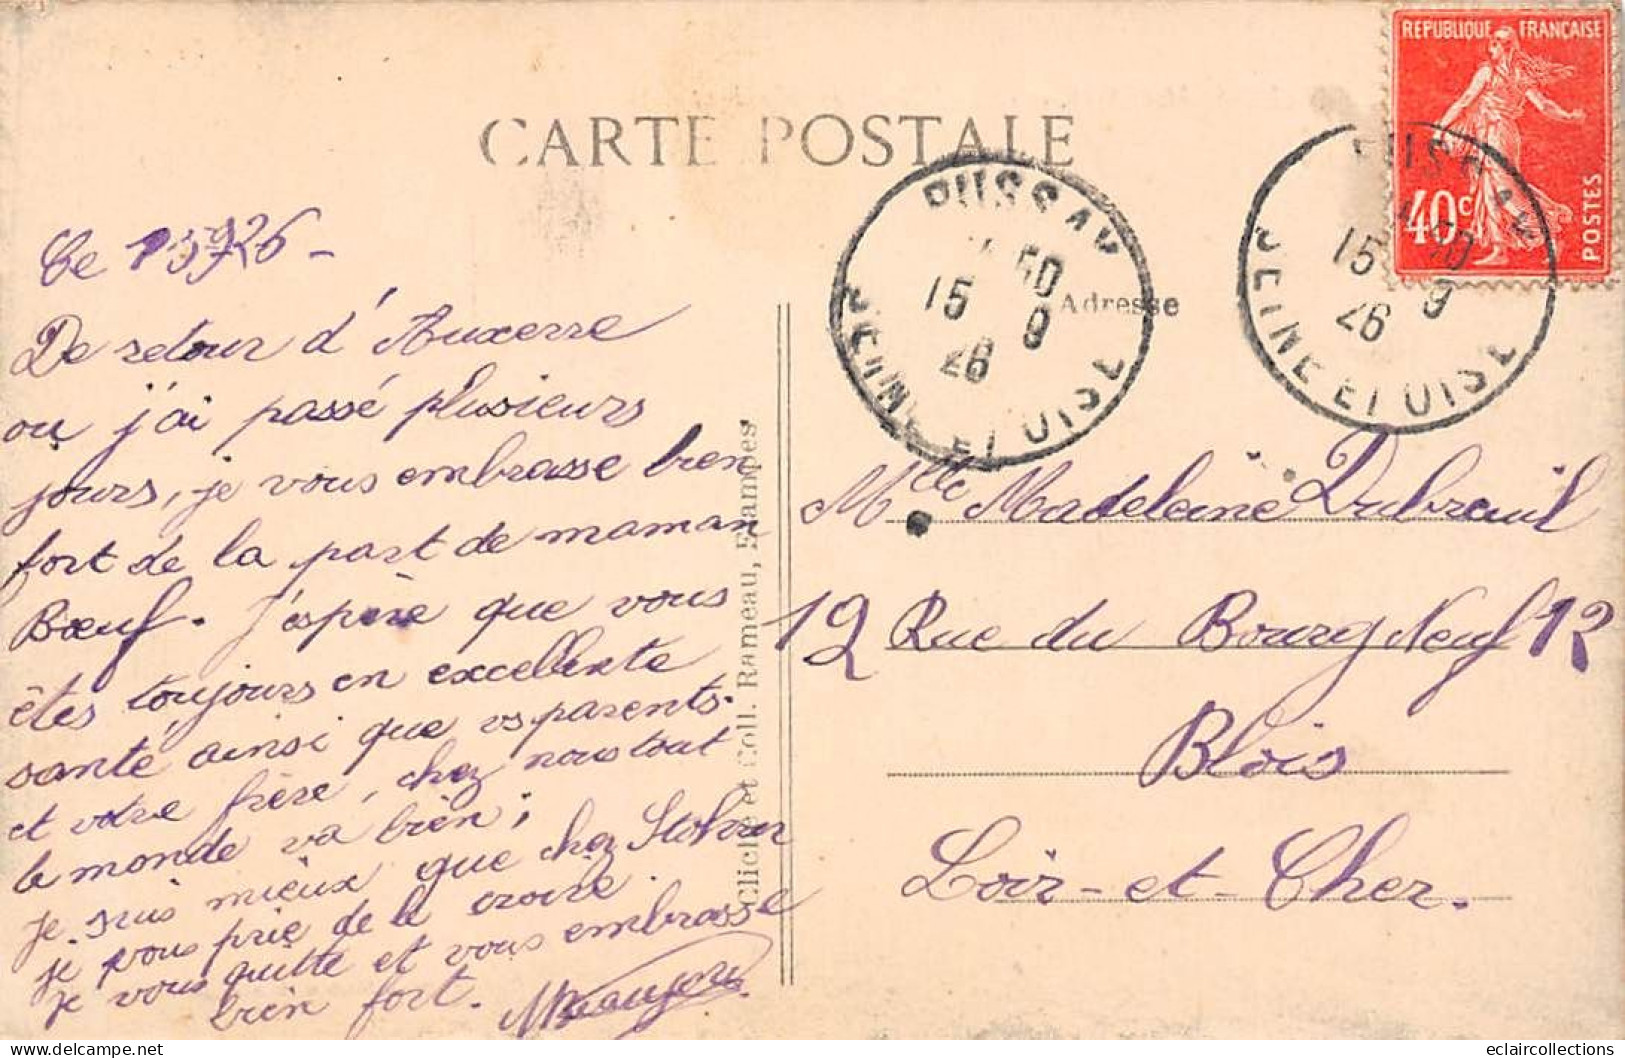 CARTE POSTALE
REPUBLIQUE FRANÇAISE
40c
POSTES
PUSSAY
15 9
26
SEINE ET OISE
PUSSAY
15 9
26
SEINE ET OISE
Adresse
Ce 15 9 26 -
De retour d'Auxerre
ou j'ai passé plusieurs
jours, je vous embrasse bien
fort de la part de maman
Bœuf. J'espère que vous
êtes toujours en excellente
santé ainsi que vs parents.
et votre frère, chez nous tout
le monde va bien;
je suis mieux que chez
je vous prie de le croire.
je vous quitte et vous embrasse
bien fort.
Cliché et Coll. Rameau, Etampes
Mlle Madeleine Dubreuil
12 Rue du Bourg Neuf 12
Blois
Loir-et-Cher.
© eclaircollections - www.delcampe.net